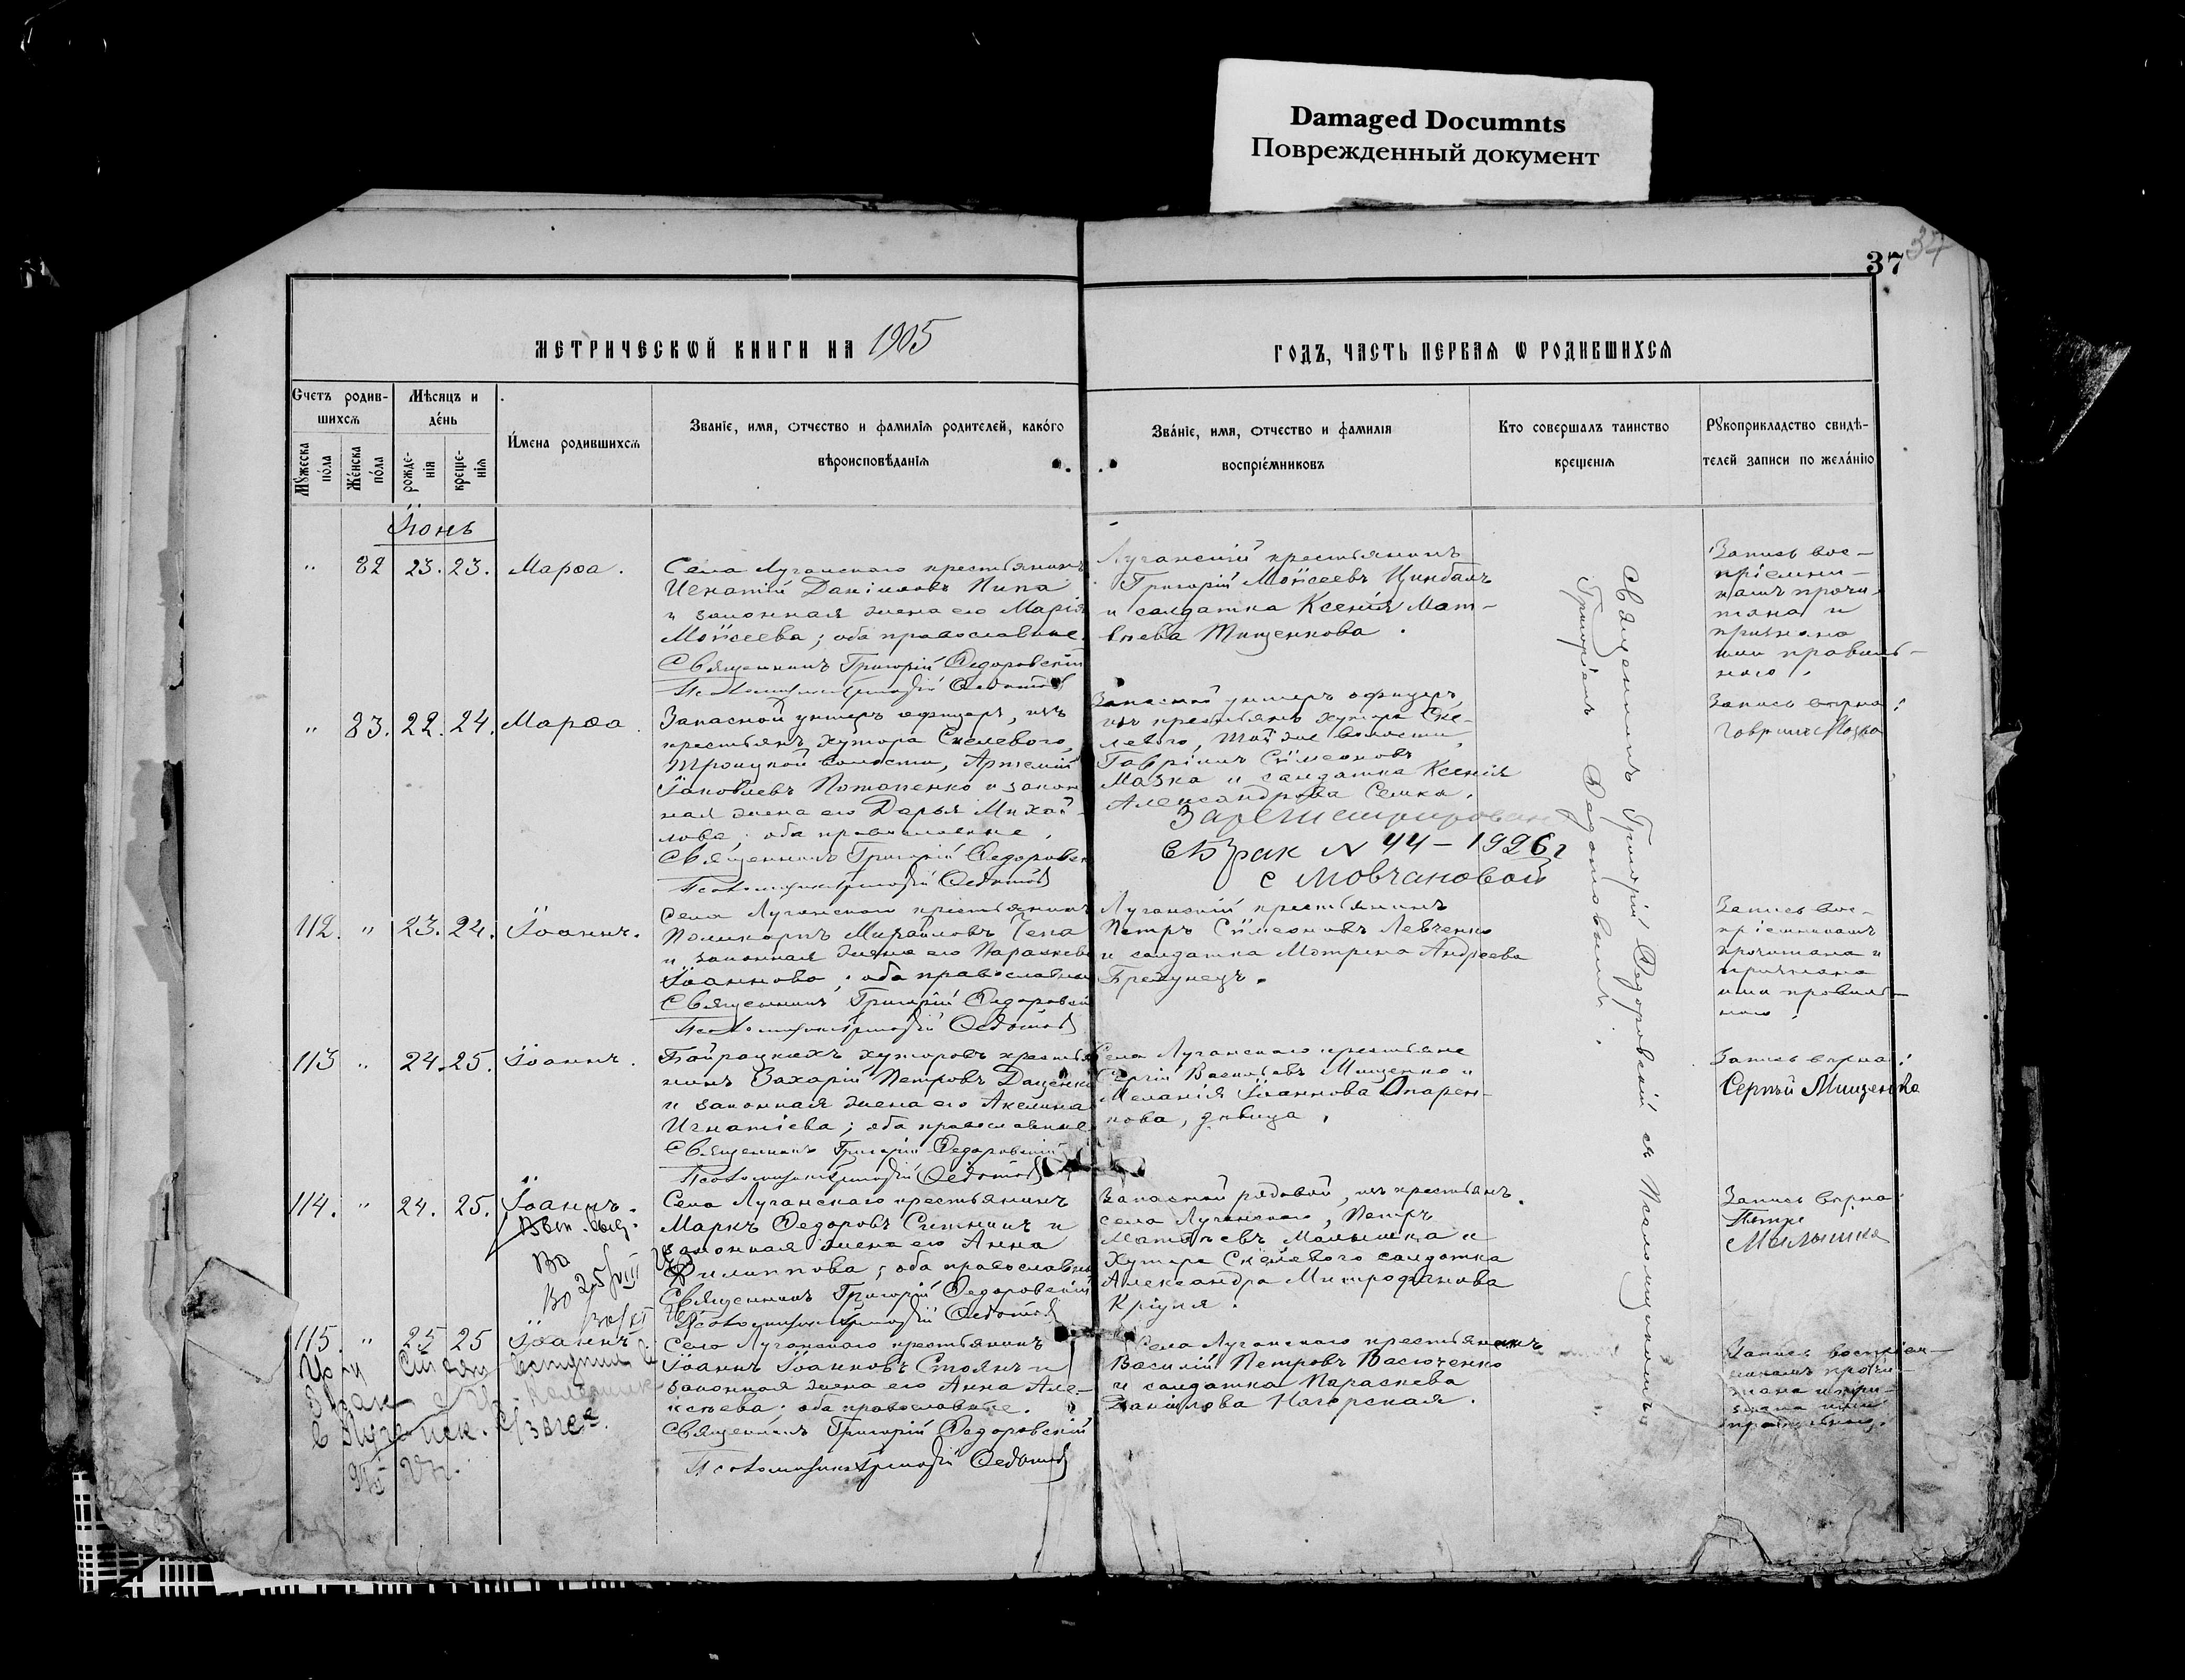 Damaged Documnts
Поврежденный документ
37
37
МЕТРИЧЕСКОЙ КНИГИ НА 1905
ГОДЪ, ЧАСТЬ ПЕРВАЯ Ѡ РОДИВШИХСЯ
Счетъ родив-
шихся
Мѣсяцъ и
день
Мужеска
пола
Женска
пола
рожде-
нія
креще-
нія
Имена родившихся
Званіе, имя, отчество и фамилія родителей, какого
вѣроисповѣданія
Званіе, имя, отчество и фамилія
воспріемниковъ
Кто совершалъ таинство
крещенія
Рукоприкладство свидѣ-
телей записи по желанію
Іюнь
" 82 23. 23. Марѳа.
Села Луганскаго крестьянинъ
Игнатій Даніиловъ Пипа
и законная жена его Марія
Моѵсеева; оба православные.
Священникъ Григорій Ѳедоровскій
Псаломщикъ Григорій Ѳедотовъ
Луганскій крестьянинъ
Григорій Моѵсеевъ Цинбалъ
и солдатка Ксенія Мат-
вѣева Тищенкова.
Запись вос-
пріемни-
камъ прочи-
тана и
признана
ими правиль-
ною.
" 83. 22. 24. Марѳа
Запасной унтеръ офицеръ, изъ
крестьянъ хутора Скелевого,
Троицкой волости, Артемій
Іаковлевъ Потапенко и закон
ная жена его Дарья Михай-
лова; оба православные.
Священникъ Григорій Ѳедоровск
Псаломщикъ Григорій Ѳедотовъ
Запасной унтеръ офицеръ,
изъ крестьянъ хутора Ске-
левого, той же волости,
Гавріилъ Сѵмеоновъ
Мазка и солдатка Ксенія
Александрова Семка.
Зарегистрирован
брак N 44 - 1926 г
с Мовчановой
Запись вѣрна:
Гавриилъ Мазка
112. " 23. 24. Іоаннъ.
Села Луганскаго крестьянинъ
Поликарпъ Михайловъ Чепа
и законная жена его Параскева
Іоаннова; оба православные
Священникъ Григорій Ѳедоровскій
Псаломщикъ Григорій Ѳедотовъ
Луганскій крестьянинъ
Петръ Сѵмеоновъ Левченко
и солдатка Мотрена Андреева
Бредунецъ.
Запись вос-
пріемникамъ
прочитана и
признана
ими правиль-
ною.
113 " 24. 25. Іоаннъ.
Байрацкихъ хуторовъ крестья
нинъ Захарій Петровъ Даценко
и законная жена его Акелина
Игнатіева; оба православные
Священникъ Григорій Ѳедоровскій
Псаломщикъ Григорій Ѳедотовъ
Села Луганскаго крестьяне
Сергій Васильевъ Мищенко и
Меланія Іоаннова Опарен-
кова, дѣвица.
Запись вѣрна:
Сергѣй Мищенко
114. " 24. 25. Іоаннъ.
Села Луганскаго крестьянинъ
Маркъ Ѳедоровъ Ситникъ и
законная жена его Анна
Филиппова; оба православные
Священникъ Григорій Ѳедоровскій
Псаломщикъ Григорій Ѳедотовъ
Запасной рядовой, изъ крестьянъ
села Луганскаго, Петръ
Матѳѣевъ Малышка и
Хутора Скелевого солдатка
Александра Митрофанова
Кріуля.
Запись вѣрна:
Петръ
Малышка
25/VIII
115. " 25 25 Іоаннъ.
Села Луганскаго крестьянинъ
Іоаннъ Іоанновъ Стоянъ и
законная жена его Анна Але-
ксѣева; оба православные.
Священникъ Григорій Ѳедоровскій
Псаломщикъ Григорій Ѳедотовъ
Села Луганскаго крестьянинъ
Василій Петровъ Васюченко
и солдатка Параскева
Даніилова Нагорская.
Запись воспріем-
никамъ прочи-
тана и при-
знана ими
правильною.
Священникъ Григорій Ѳедоровскій съ Псаломщикомъ
Григоріемъ Ѳедотовымъ.